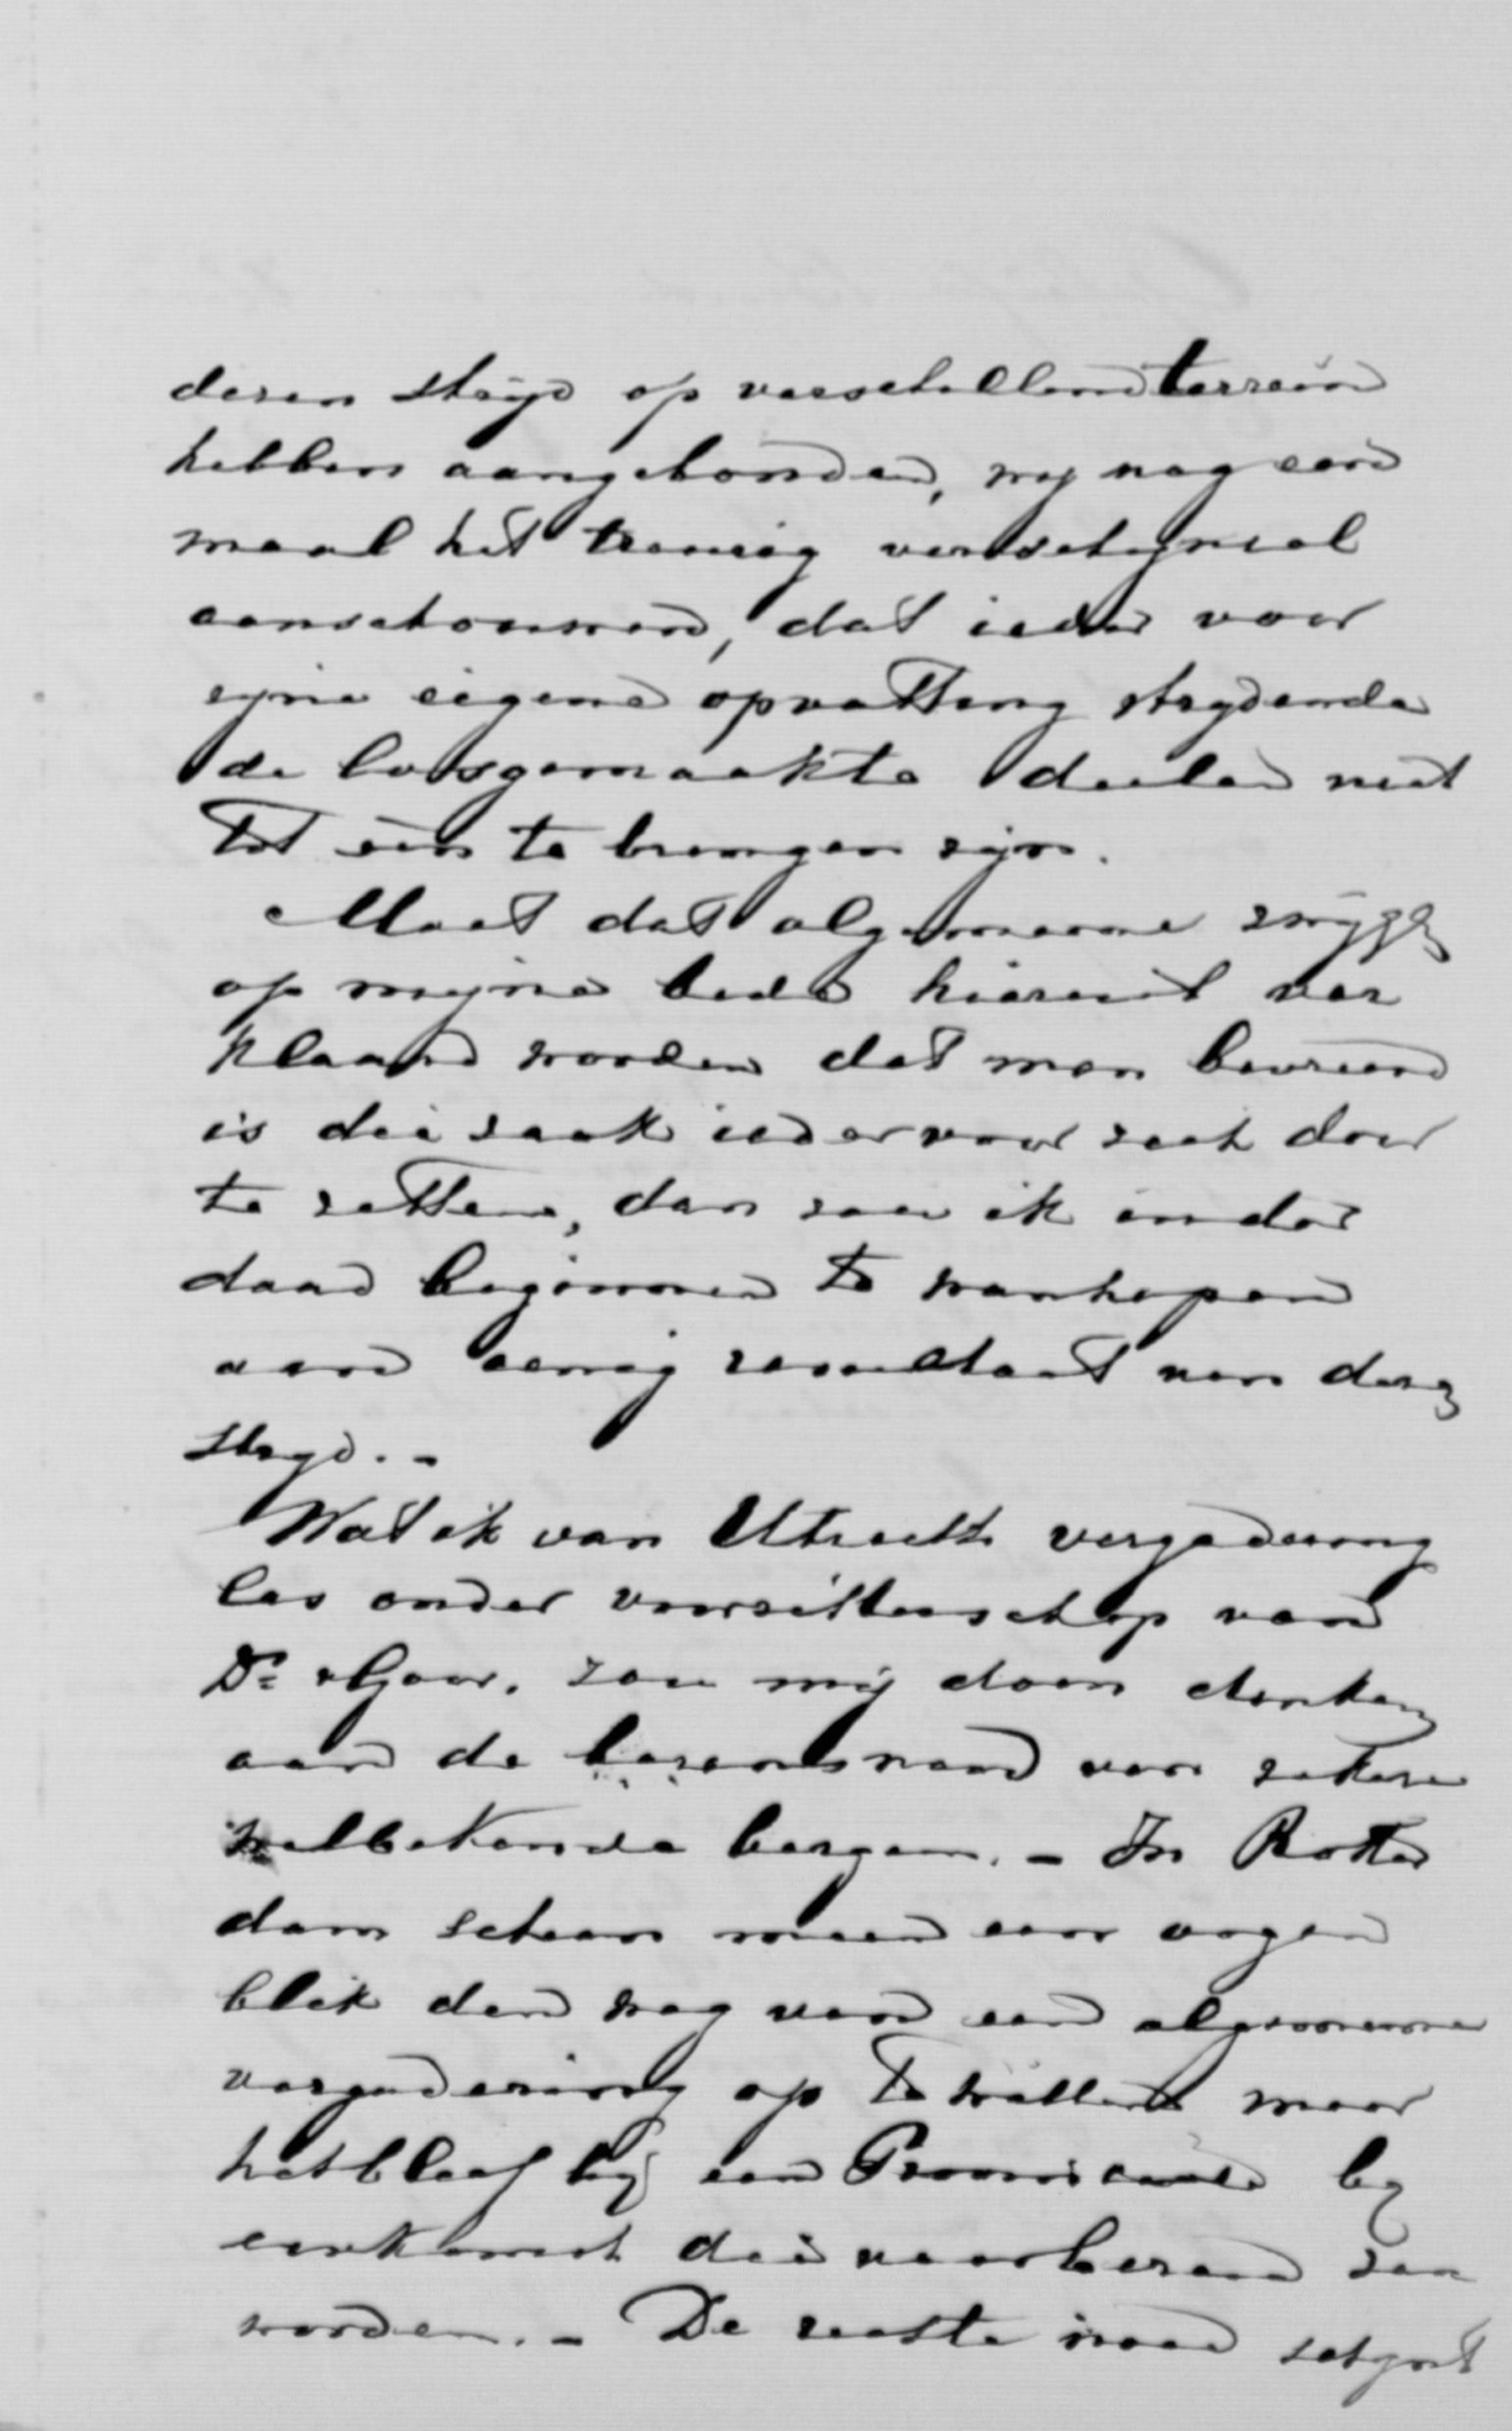 dezen strijd op verschillend terrein
hebben aangebonden, wij nog een
maal het treurig verschijnsel
aanschouwen, dat ieder voor
zijne eigene opvatting strijdende
de losgemaakte deelen niet
tot één te brengen zijn.
Moet dat algemeene zwijgen
op mijne bede hieruit ver
klaard worden dat men bevreesd
is die zaak ieder voor zich door
te zetten, dan zou ik inder
daad beginnen te wanhopen
aan eenig resultaat van dezen
strijd. -
Wat ik van Utrechts vergadering
las onder voorzitterschap van
Dr. zou mij doen denken
aan de barensnood van zekere
welbekende bergen. - In Rotter
dam scheen men een oogen
blik den weg van een algemeene
vergadering op te willen maar
het bleef bij een Provinciale bij
eenkomst die voorbereid zou
worden. - De rechte man schijnt